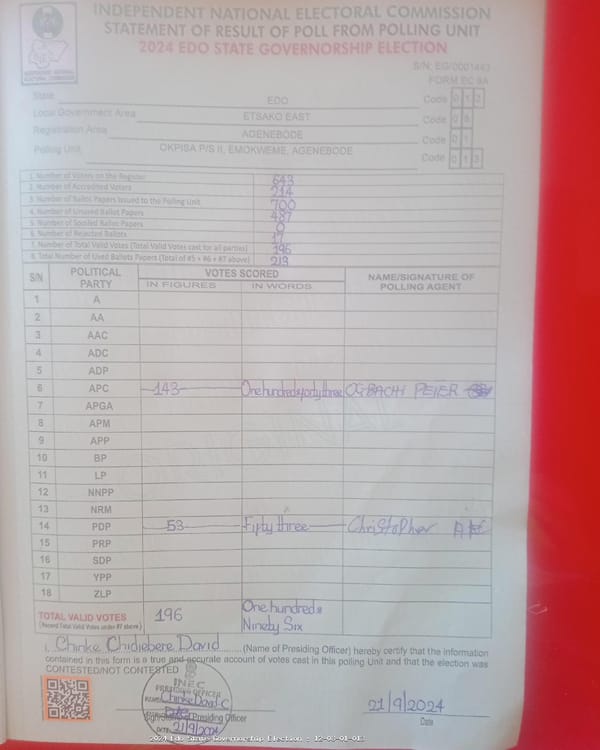 INDEPENDENT NATIONAL ELECTORAL COMMISSION
STATEMENT OF RESULT OF POLL FROM POLLING UNIT
2024 EDO STATE GOVERNORSHIP ELECTION
INDEPENDENT NATIONAL ELECTORAL COMMISSION
S/N: EG/0001443
FORM EC 8A
State EDO Code 0 1 2
Local Government Area ETSAKO EAST Code 0
Registration Area AGENEBODE Code 0 1
Polling Unit OKPISA P/S II, EMOKWEME, AGENEBODE Code 0 1 3
1. Number of Voters on the Register 643
2. Number of Accredited Voters 214
3. Number of Ballot Papers Issued to the Polling Unit 700
4. Number of Unused Ballot Papers 487
5. Number of Spoiled Ballot Papers 0
6. Number of Rejected Ballots 17
7. Number of Total Valid Votes (Total Valid Votes cast for all parties) 196
8. Total Number of Used Ballots Papers (Total of #5 + #6 + #7 above) 213
S/N POLITICAL PARTY VOTES SCORED NAME/SIGNATURE OF POLLING AGENT
IN FIGURES IN WORDS
1 A
2 AA
3 AAC
4 ADC
5 ADP
6 APC 143 One hundred & forty three OGBACHI PETER
7 APGA
8 APM
9 APP
10 BP
11 LP
12 NNPP
13 NRM
14 PDP 53 Fifty three Christopher
15 PRP
16 SDP
17 YPP
18 ZLP
TOTAL VALID VOTES 196 One hundred &
(Record Total Valid Votes under #7 above) Ninety Six
I, Chinke Chidiebere David (Name of Presiding Officer) hereby certify that the information
contained in this form is a true and accurate account of votes cast in this polling Unit and that the election was
CONTESTED/NOT CONTESTED
INEC
PRESIDING OFFICER
NAME: Chinke David C
Signature of Presiding Officer
DATE: 21/9/2024
21/9/2024
Date
2024 Edo State Governorship Election - 12-06-01-013